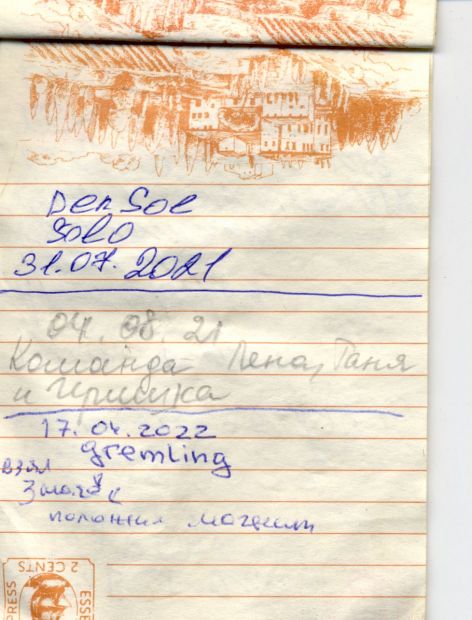 Den Sol
solo
31.07.2021
04.08.21
Команда Лена, Таня
и Иришка
17.04.2022
gremling
взял
положил магнит
2 CENTS
PRESS
ESSE